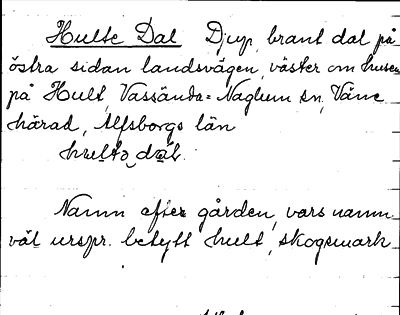 Hulte Dal Djup, brant dal på
östra sidan landsvägen, väster om husen
på Hult, Vassända-Naglum sn, Väne
härad, Älfsborgs län
hulta dal.
Namn efter gården, vars namn
väl urspr. betytt hult, skogsmark